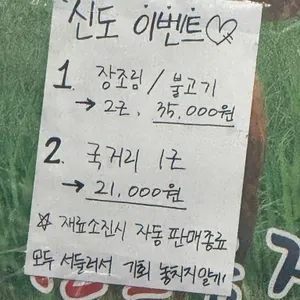 신도 이벤트♡
1. 장조림 / 불고기
→ 2근, 35,000원
2. 국거리 1근
→ 21,000원
☆ 재료소진시 자동 판매종료
모두 서둘러서 기회 놓치지 않게!